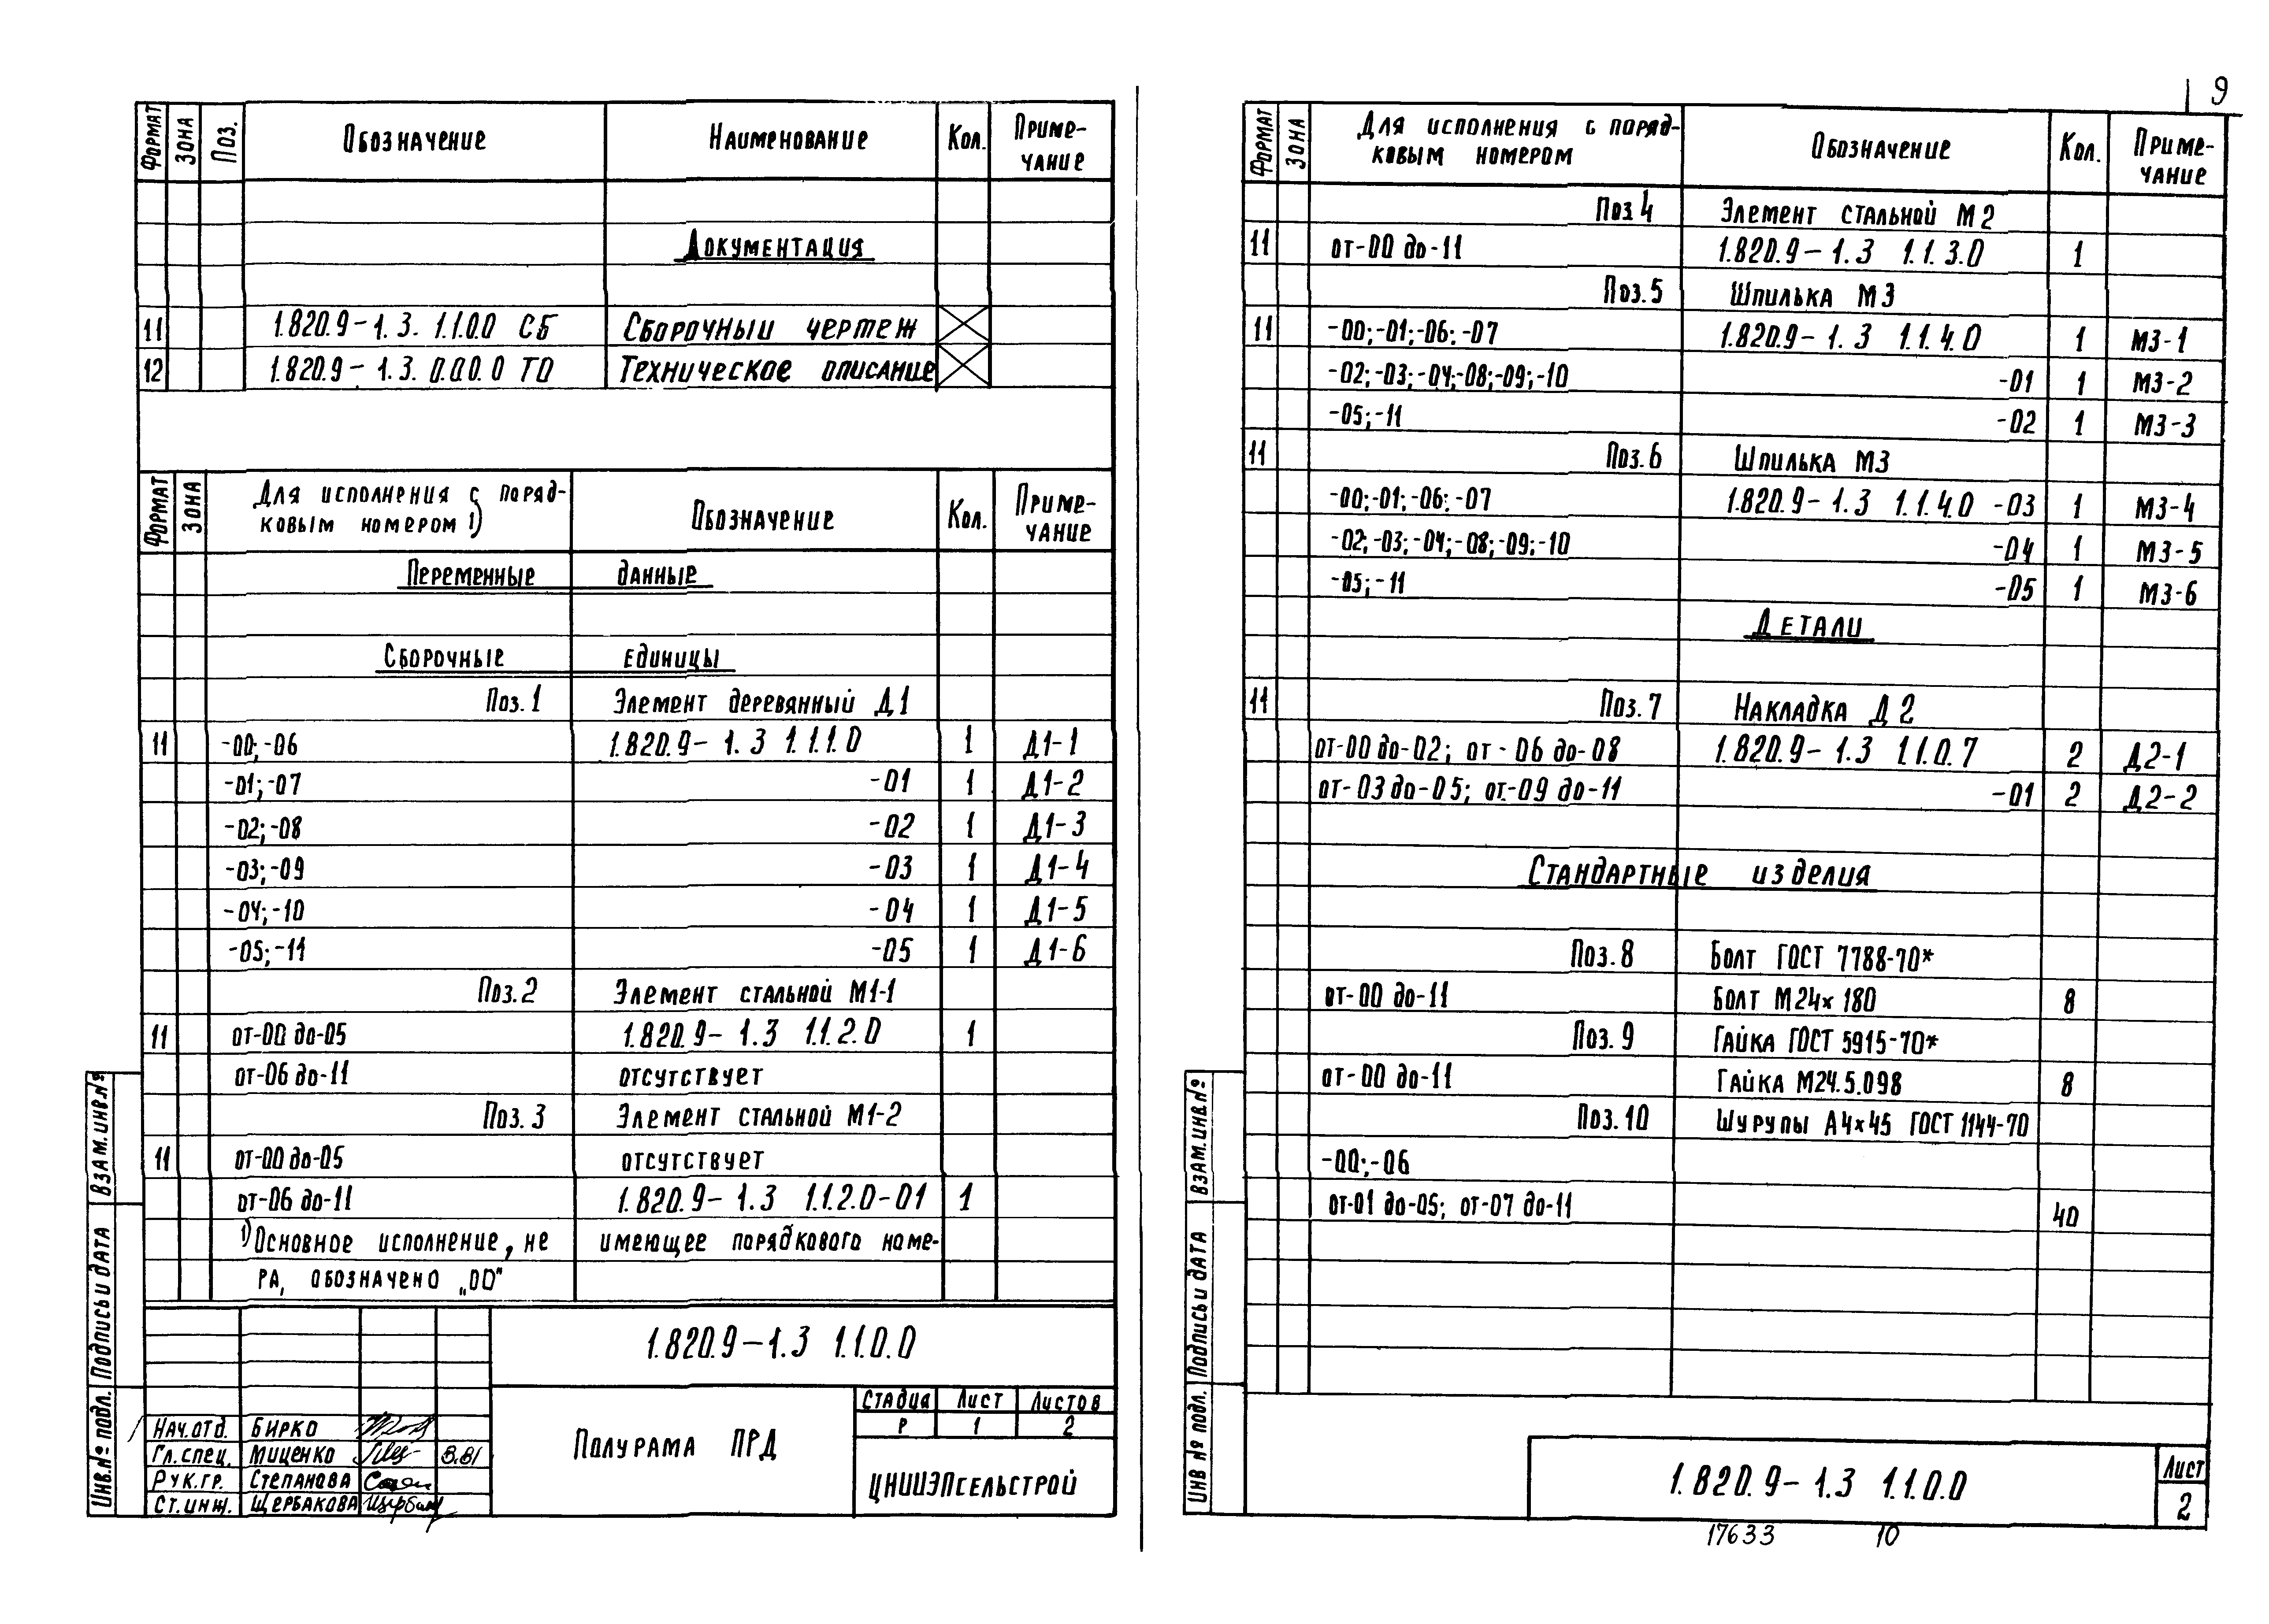 9
ФОРМАТ ЗОНА ПОЗ. ОБОЗНАЧЕНИЕ НАИМЕНОВАНИЕ КОЛ. ПРИМЕ-
ЧАНИЕ
ДОКУМЕНТАЦИЯ
11 1.820.9-1.3. 1.1.0.0 СБ СБОРОЧНЫЙ ЧЕРТЕЖ
12 1.820.9-1.3. 0.0.0.0 ТО ТЕХНИЧЕСКОЕ ОПИСАНИЕ
ФОРМАТ ЗОНА ДЛЯ ИСПОЛНЕНИЯ С ПОРЯД-
КОВЫМ НОМЕРОМ 1) ОБОЗНАЧЕНИЕ КОЛ. ПРИМЕ-
ЧАНИЕ
ПЕРЕМЕННЫЕ ДАННЫЕ
СБОРОЧНЫЕ ЕДИНИЦЫ
ПОЗ.1 ЭЛЕМЕНТ ДЕРЕВЯННЫЙ Д1
11 -00;-06 1.820.9-1.3 1.1.1.0 1 Д1-1
-01;-07 -01 1 Д1-2
-02;-08 -02 1 Д1-3
-03;-09 -03 1 Д1-4
-04;-10 -04 1 Д1-5
-05;-11 -05 1 Д1-6
ПОЗ.2 ЭЛЕМЕНТ СТАЛЬНОЙ М1-1
11 от-00 до-05 1.820.9-1.3 1.1.2.0 1
от-06 до-11 ОТСУТСТВУЕТ
ПОЗ.3 ЭЛЕМЕНТ СТАЛЬНОЙ М1-2
11 от-00 до-05 ОТСУТСТВУЕТ
от-06 до-11 1.820.9-1.3 1.1.2.0-01 1
1) ОСНОВНОЕ ИСПОЛНЕНИЕ, НЕ ИМЕЮЩЕЕ ПОРЯДКОВОГО НОМЕ-
РА, ОБОЗНАЧЕНО „00"
1.820.9-1.3 1.1.0.0
ПОЛУРАМА ПРД
СТАДИЯ ЛИСТ ЛИСТОВ
Р 1 2
ЦНИИЭПСЕЛЬСТРОЙ
НАЧ.ОТД. БИРКО
ГЛ.СПЕЦ. МИЦЕНКО
РУК.ГР. СТЕПАНОВА
СТ.ИНЖ. ЩЕРБАКОВА
ИНВ.№ ПОДЛ. ПОДПИСЬ И ДАТА ВЗАМ.ИНВ.№
ФОРМАТ ЗОНА ДЛЯ ИСПОЛНЕНИЯ С ПОРЯД-
КОВЫМ НОМЕРОМ ОБОЗНАЧЕНИЕ КОЛ. ПРИМЕ-
ЧАНИЕ
ПОЗ.4 ЭЛЕМЕНТ СТАЛЬНОЙ М2
11 от-00 до-11 1.820.9-1.3 1.1.3.0 1
ПОЗ.5 ШПИЛЬКА М3
11 -00;-01;-06;-07 1.820.9-1.3 1.1.4.0 1 М3-1
-02;-03;-04;-08;-09;-10 -01 1 М3-2
-05;-11 -02 1 М3-3
11 ПОЗ.6 ШПИЛЬКА М3
-00;-01;-06;-07 1.820.9-1.3 1.1.4.0 -03 1 М3-4
-02;-03;-04;-08;-09;-10 -04 1 М3-5
-05;-11 -05 1 М3-6
ДЕТАЛИ
11 ПОЗ.7 НАКЛАДКА Д2
от-00 до-02; от-06 до-08 1.820.9-1.3 1.1.0.7 2 Д2-1
от-03 до-05; от-09 до-11 -01 2 Д2-2
СТАНДАРТНЫЕ ИЗДЕЛИЯ
ПОЗ.8 БОЛТ ГОСТ 7788-70*
от-00 до-11 БОЛТ М24х180 8
ПОЗ.9 ГАЙКА ГОСТ 5915-70*
от-00 до-11 ГАЙКА М24.5.098 8
ПОЗ.10 ШУРУПЫ А4х45 ГОСТ 1144-70
-00;-06
от-01 до-05; от-07 до-11 40
ИНВ № ПОДЛ. ПОДПИСЬ И ДАТА ВЗАМ.ИНВ.№
1.820.9-1.3 1.1.0.0
ЛИСТ
2
17633 10